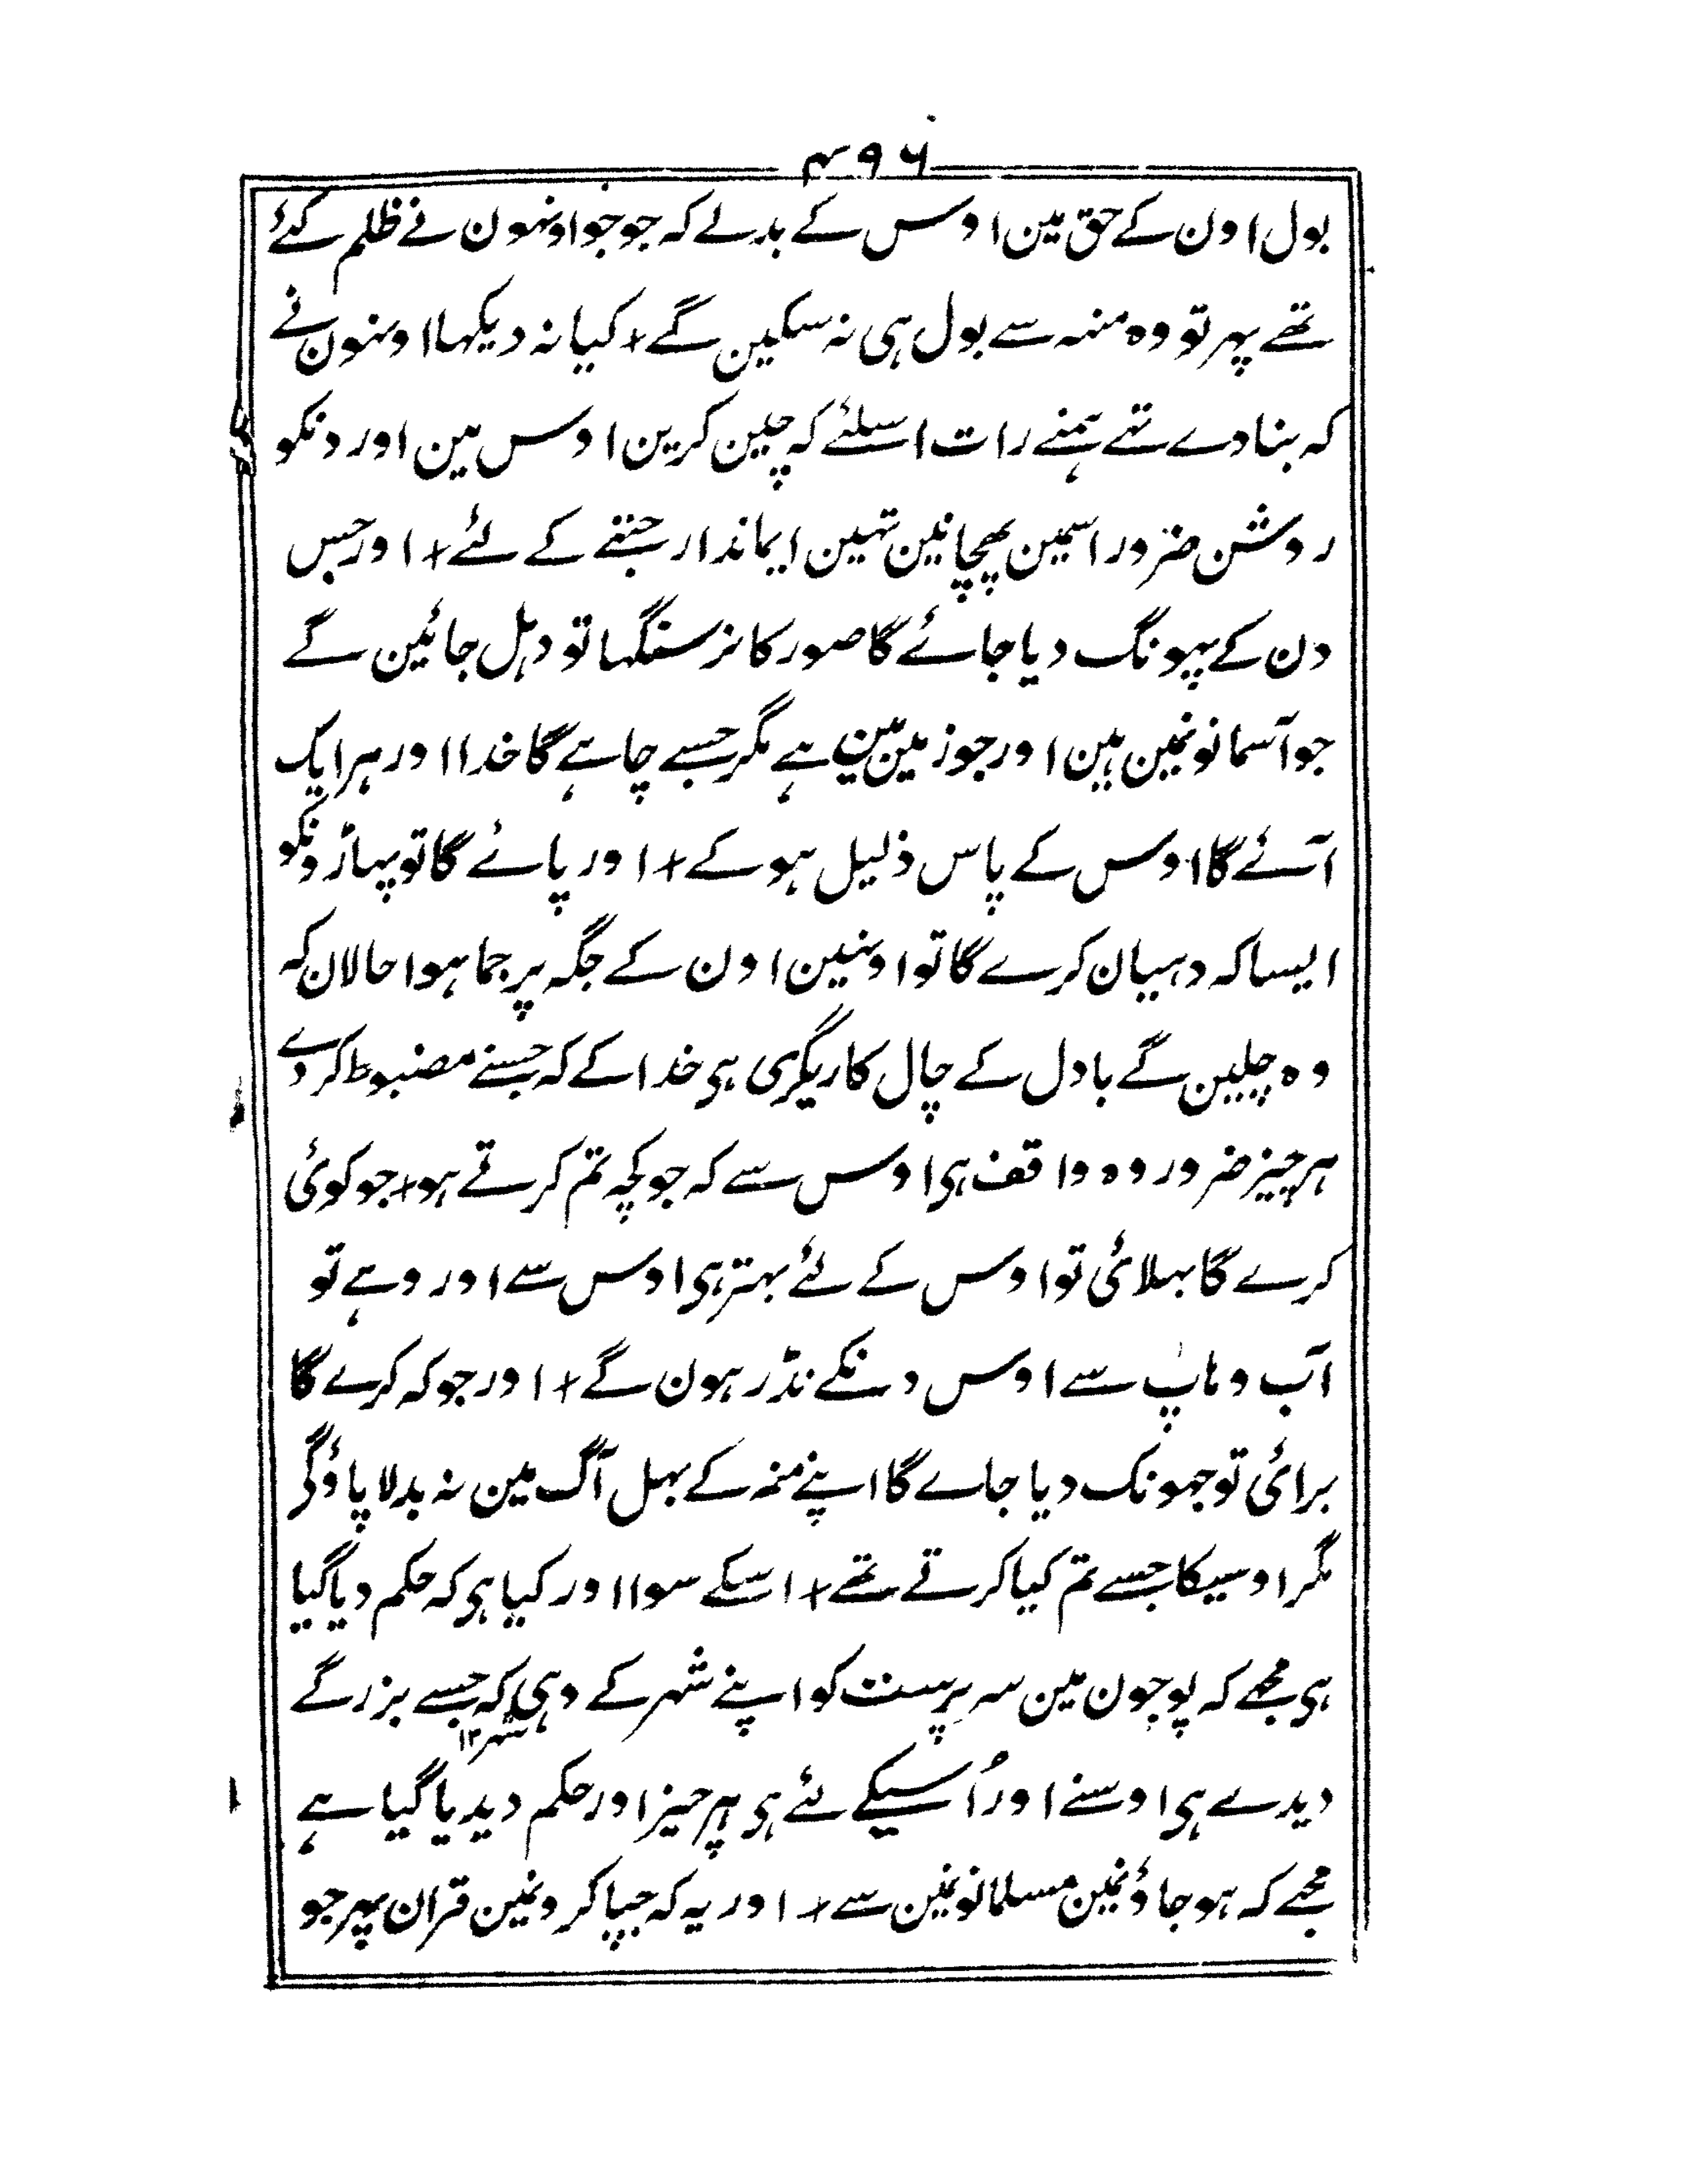 ۴۹۶
بول اون کے حق مین اوس کے بدلے کہ جو جو اونہون نے ظلم کئے
تھے پہر تو وہ منہ سے بول ہی نہ سکین گے + کیا نہ دیکہا اونہون نے
کہ بنا دے تہے ہمنے رات اسلئے کہ چلین کرین اوس مین اور دنکو
روشن ضرور اسمین پہچانین تہین ایماندار جتنے کے لئے + اور جس
دن کے پہونگ دیا جائے گا صور کا نرسنگہا تو دہل جائین گے
جو آسمانونمین ہین اور جو زمین مین ہے مگر جسے چاہے گا خدا اور ہر ایک
آئے گا اوس کے پاس ذلیل ہو کے + اور پائے گا تو پہاڑونکو
ایسا کہ دہیان کرے گا تو اونہین اون کے جگہ پر جما ہوا حالان کہ
وہ چلین گے بادل کے چال کاریگری ہی خدا کے کہ جسنے مضبوط کر دے
ہر چیز ضرور وہ واقف ہی اوس سے کہ جو کچہ تم کرتے ہو + جو کوئی
کرے گا بہلائی تو اوس کے لئے بہتر ہی اوس سے اور وہے تو
آپ وہاپ سے اوس دنکے نڈر ہون گے + اور جو کہ کرے گا
برائی تو جہونک دیا جاے گا اپنے منہ کے بہل آگ مین نہ بدلا پاؤگے
مگر اوسیکا جسے تم کیا کرتے تھے + اسکے سوا اور کیا ہی کہ حکم دیا گیا
ہی مجھے کہ پوجون مین سرپرست کو اپنے شہر کے وہی کہ جسے بزرگے
شہر ۱۲
دیدے ہی اوسنے اور اُسیکے لئے ہی ہر چیز اور حکم دیدیا گیا ہے
مجھے کہ ہو جاؤنمین مسلمانونمین سے + اور یہ کہ جپا کرونمین قران پہر جو